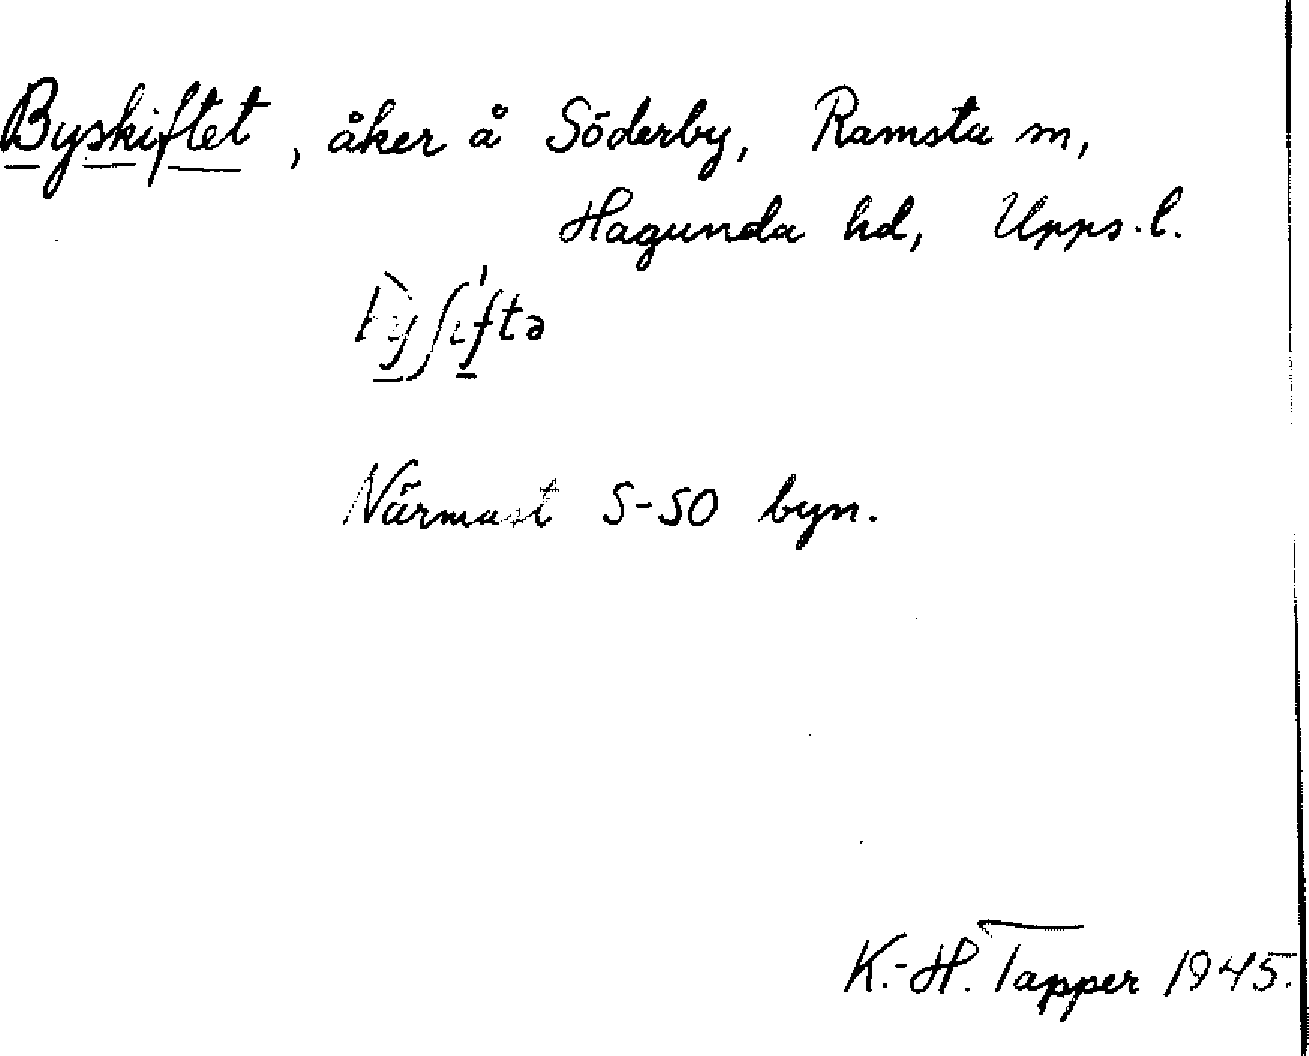 Byskiftet, åker å Söderby, Ramsta sn,
Hagunda hd, Upps. l.
Närmast S-SO byn.
K.-H. Tapper 1945.